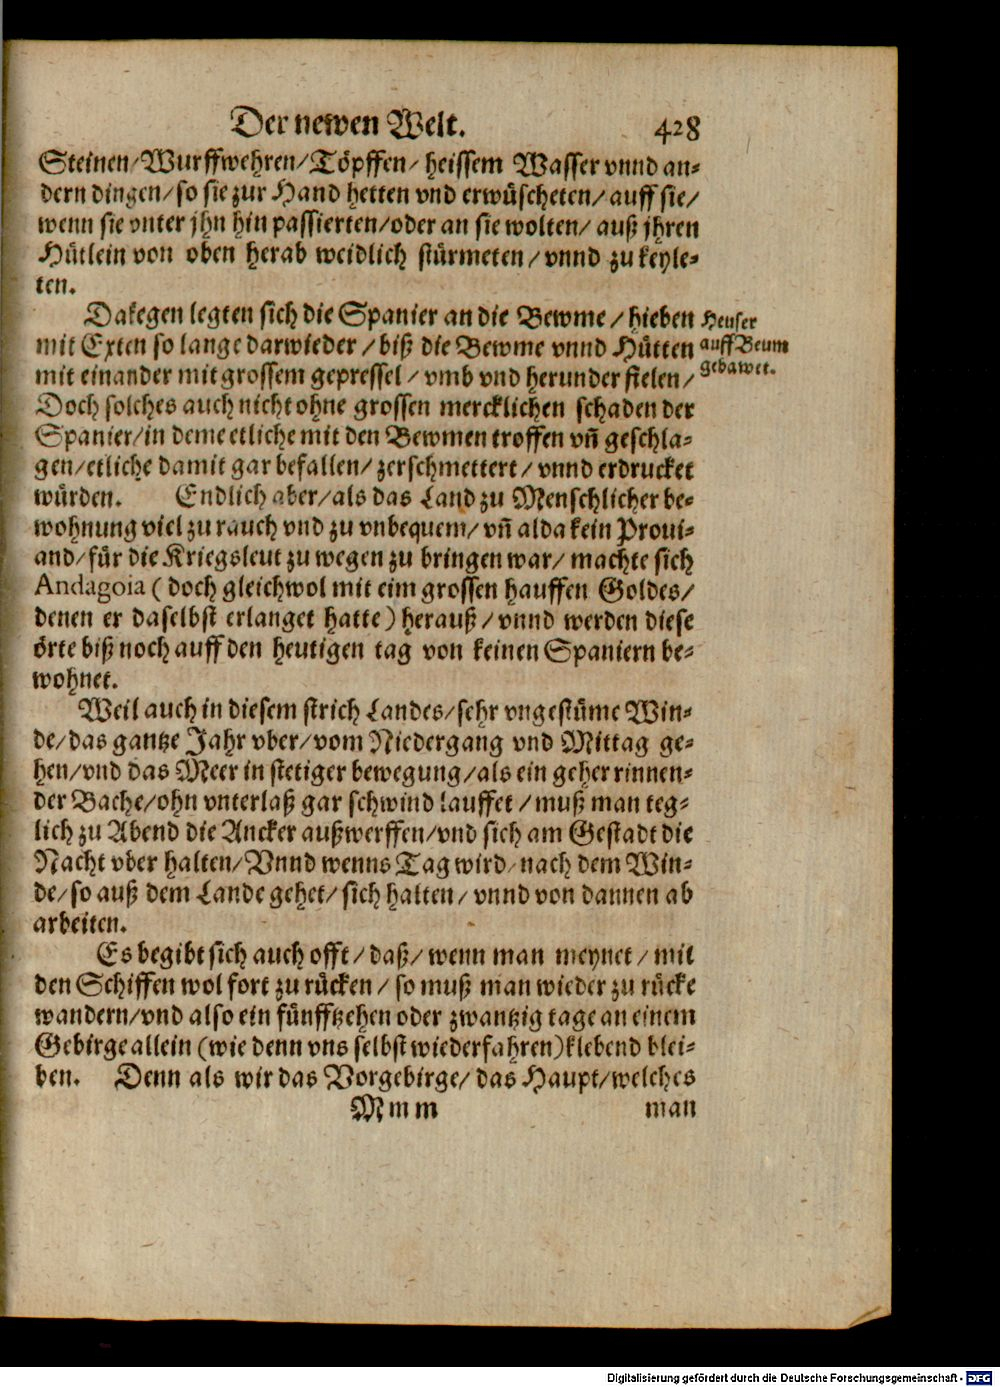 Der newen Welt. 428
Steinen/Wurffwehren/Töpffen/ heissem Wasser vnnd an⸗
dern dingen/so sie zur Hand hetten vnd erwüscheten/ auff sie/
wenn sie vnter jhn hin passierten/oder an sie wolten/ auß jhren
Hütlein von oben herab weidlich stürmeten/ vnnd zu keyle⸗
ten.
Dakegen legten sich die Spanier an die Bewme/ hieben
Heuser
mit Exten so lange darwieder/ biß die Bewme vnnd Hütten
auff Beum
mit einander mit grossem gepressel/ vmb vnd herunder fielen/
gebawet.
Doch solches auch nicht ohne grossen mercklichen schaden der
Spanier/in deme etliche mit den Bewmen troffen vñ geschla⸗
gen/etliche damit gar befallen/ zerschmettert/ vnnd erdrucket
würden. Endlich aber/als das Land zu Menschlicher be⸗
wohnung viel zu rauch vnd zu vnbequem/ vñ alda kein Proui⸗
and/für die Kriegsleut zu wegen zu bringen war/ machte sich
Andagoia (doch gleichwol mit eim grossen hauffen Goldes/
denen er daselbst erlanget hatte) herauß/ vnnd werden diese
örte biß noch auff den heutigen tag von keinen Spaniern be⸗
wohnet.
Weil auch in diesem strich Landes/sehr vngestüme Win⸗
de/das gantze Jahr vber/vom Niedergang vnd Mittag ge⸗
hen/vnd das Meer in stetiger bewegung/als ein geher rinnen⸗
der Bache/ohn vnterlaß gar schwind lauffet/ muß man teg⸗
lich zu Abend die Ancker außwerffen/vnd sich am Gestadt die
Nacht vber halten/Vnnd wenns Tag wird/nach dem Win⸗
de/so auß dem Lande gehet/ sich halten/ vnnd von dannen ab
arbeiten.
Es begibt sich auch offt/ daß/ wenn man meynet/ mit
den Schiffen wol fort zu rücken/ so muß man wieder zu rücke
wandern/vnd also ein fünfftzehen oder zwantzig tage an einem
Gebirge allein (wie denn vns selbst wiederfahren) klebend blei⸗
ben. Denn als wir das Vorgebirge/ das Haupt/welches
Mmm man
Digitalisierung gefördert durch die Deutsche Forschungsgemeinschaft - DFG